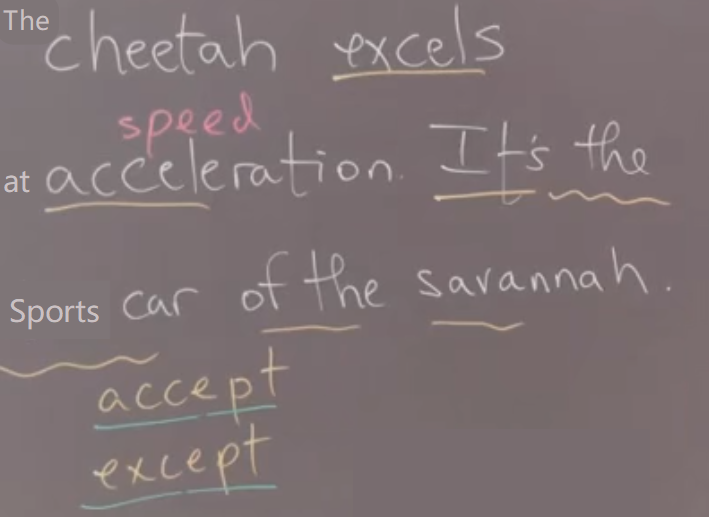 The
cheetah excels
speed
at acceleration. It's the
Sports car of the savannah.
accept
except